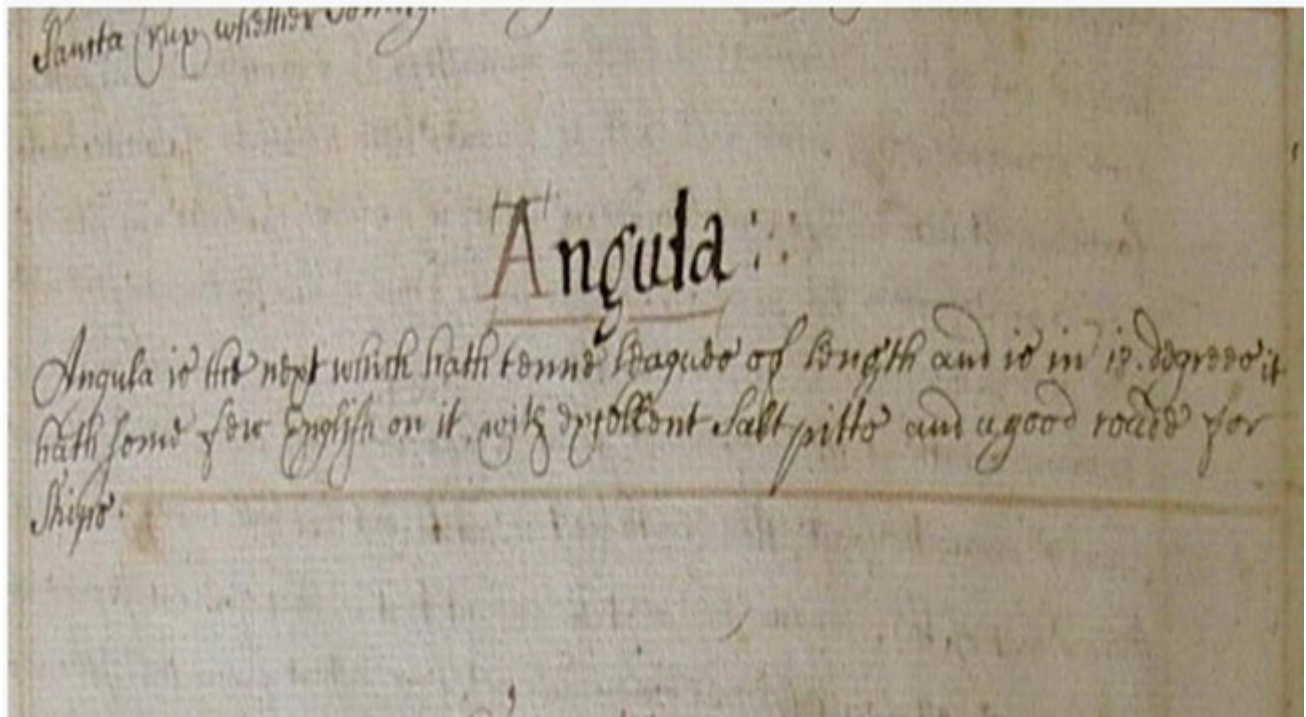 Santa Crux whether
Angula
Angula is the next which hath tenne leagues of length and is in 18. degrees it
hath some few English on it, with exsellent Salt pitts and a good roade for
Ships.